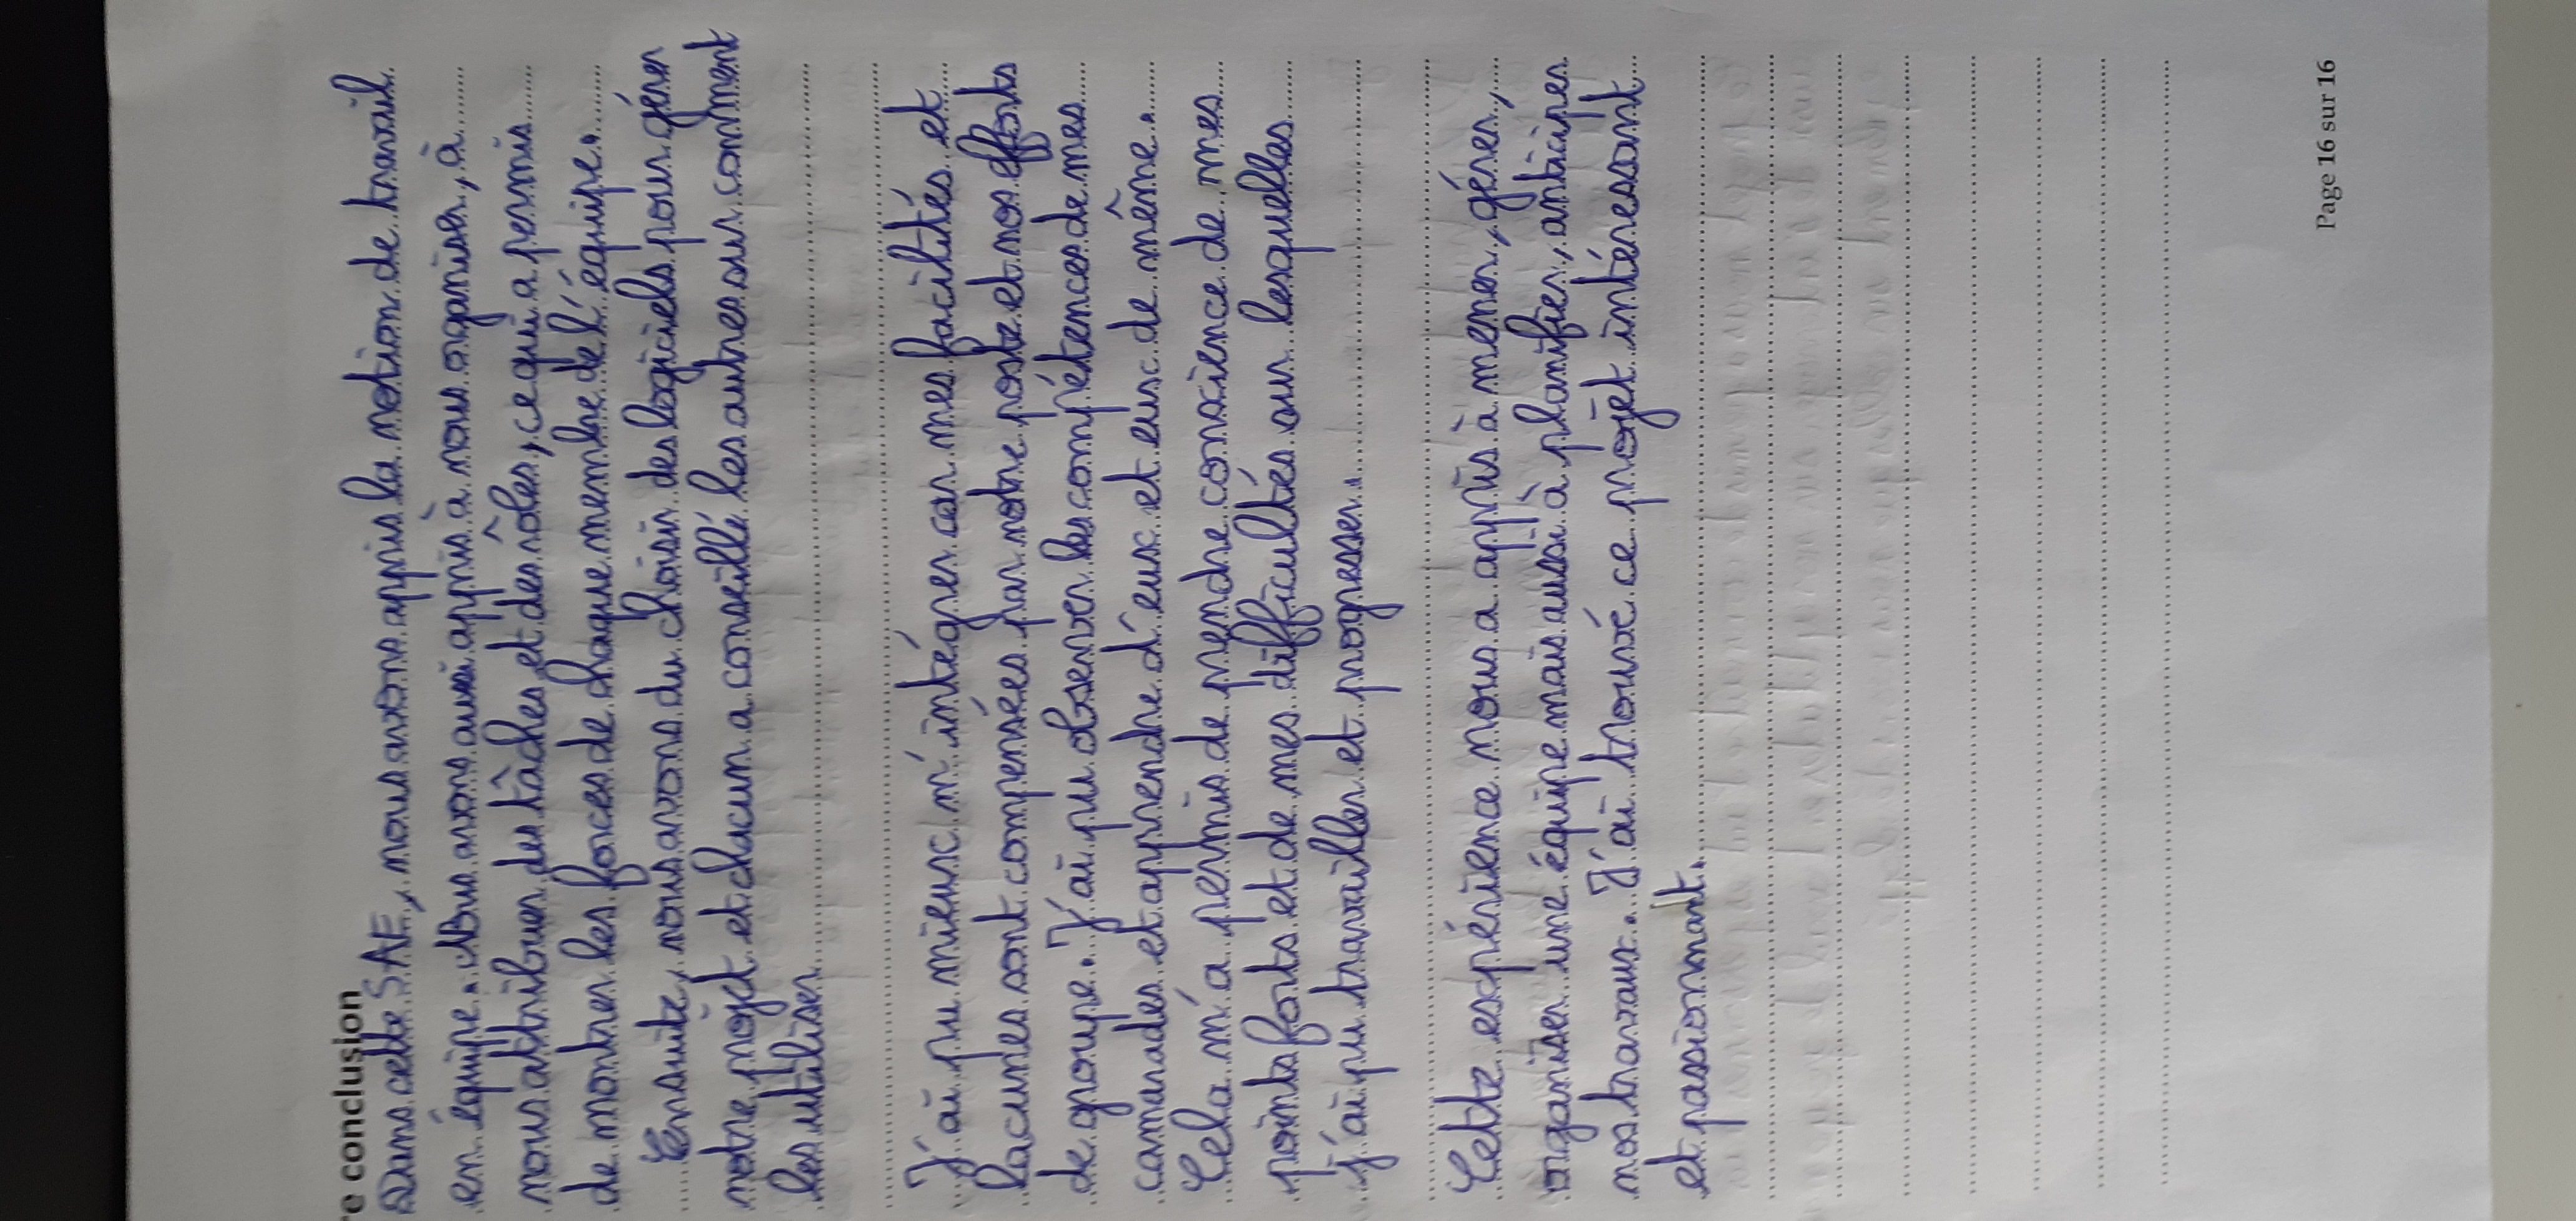 re conclusion
Dans cette SAE, nous avons appris la notion de travail
en équipe. Nous avons aussi appris à nous organiser, à
nous attribuer des tâches et des rôles, ce qui a permis
de montrer les forces de chaque membre de l'équipe.
Ensuite, nous avons du choisir des logiciels pour gérer
notre projet et chacun a conseillé les autres sur comment
les utiliser
J'ai pu mieux m'intégrer car mes facilités et
lacunes sont compensées par notre poste et nos efforts
de groupe. J'ai pu observer les compétences de mes
camarades et apprendre d'eux et eux de même.
Cela m'a permis de prendre conscience de mes
points forts et de mes difficultés sur lesquelles
j'ai pu travailler et progresser.
Cette expérience nous a appris à mener, gérer,
organiser une équipe mais aussi à planifier, anticiper
nos travaux. J'ai trouvé ce projet intéressant
et passionnant.
Page 16 sur 16